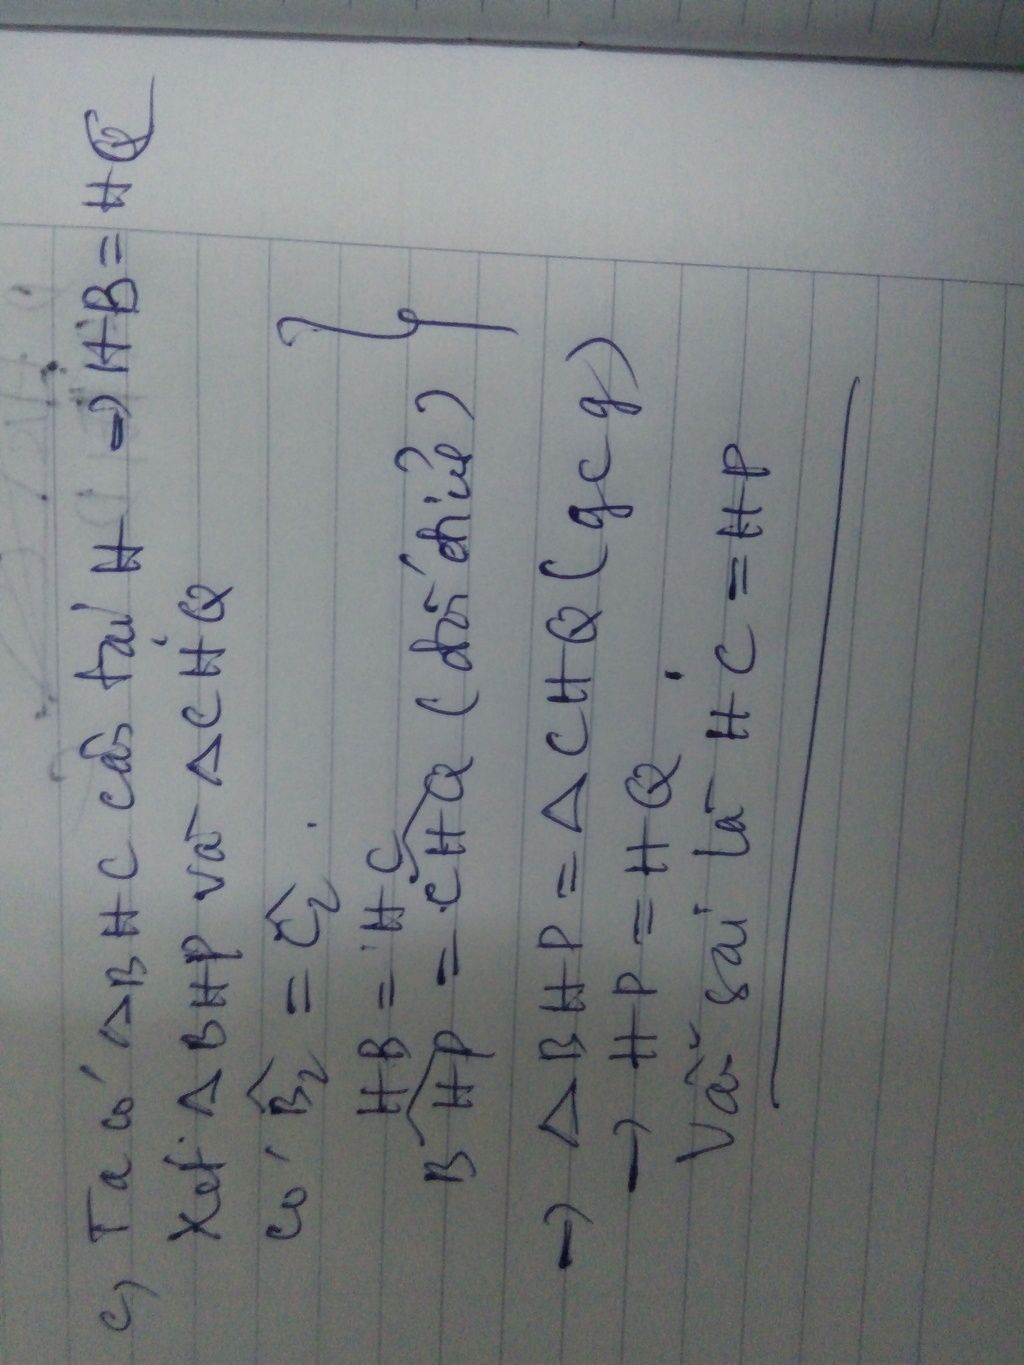 c) Ta có ΔBHC cân tại H → HB = HQ
Xét ΔBHP và ΔCHQ
Có B̂₂ = Ĉ₂
HB = HC
BHP = CHQ (đối đỉnh)
→ ΔBHP = ΔCHQ (gcg)
→ HP = HQ
Vẫn sai là HC = HP